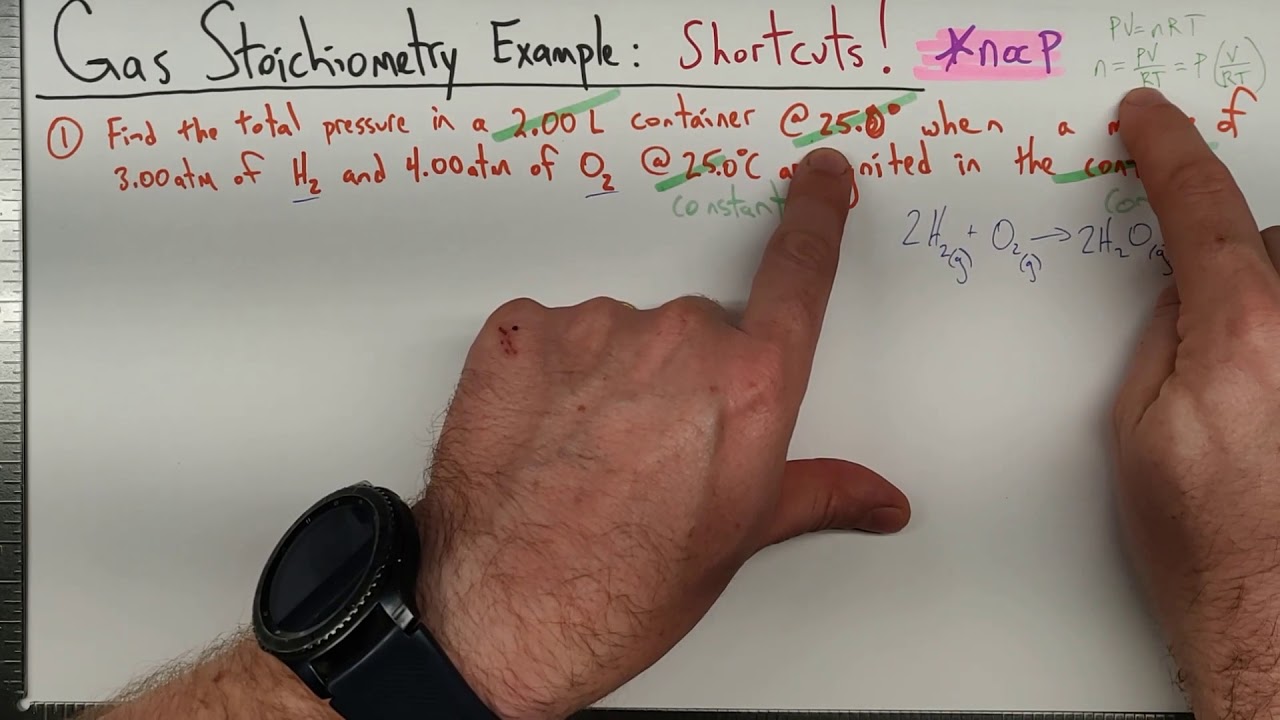 Gas Stoichiometry Example: Shortcuts! *n∝P
PV=nRT
n = PV/RT = P(V/RT)
① Find the total pressure in a 2.00L container @ 25.0° when a of
3.00atm of H₂ and 4.00atm of O₂ @ 25.0°C in the
constant
2H₂(g) + O₂(g) → 2H₂O(g)